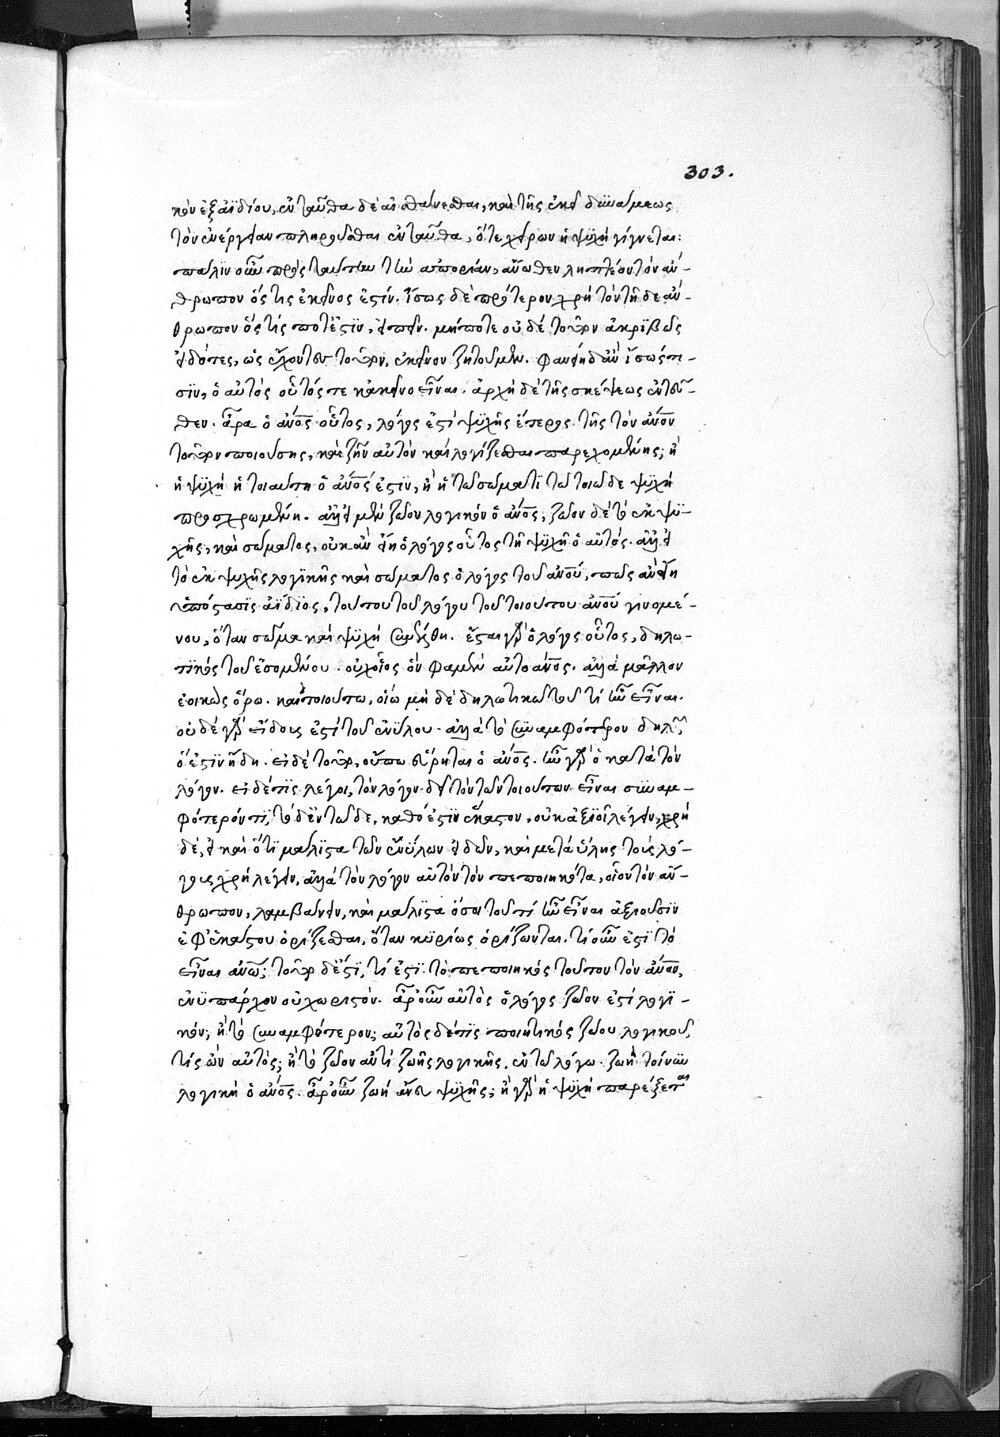 303.
κὸν ἐξ ἀϊδίου, ἐνταῦθα δὲ αἰσθάνεσθαι, καὶ τῆς ἐκεῖ δυνάμεως
τὸν ἐνέργειαν πληροῦσθαι ἐνταῦθα, ὅτε χείρων ἡ ψυχὴ γίγνεται:
πάλιν οὖν πρὸς ταύτην τὴν ἀπορίαν, ἄνωθεν ληπτέον τὸν ἄν-
θρωπον ὅς τις ἐκεῖνος ἐστίν. ἴσως δὲ πρότερον χρὴ τὸν τῇδε ἄν-
θρωπον ὅς τίς ποτέ ἐστϊν, εἰπεῖν. μήποτε οὐδὲ τοῦτον ἀκριβῶς
εἰδότες, ὡς ἔχοντες τοῦτον, ἐκεῖνον ζητοῦμεν. φανείη δ' ἂν ἴσως τι-
σϊν, ὁ αὐτὸς οὗτός τε κἀκεῖνο εἶναι. ἀρχὴ δὲ τῆς σκέψεως ἐντεῦ-
θεν. ἆρα ὁ ἄνος οὗτος, λόγος ἐστὶ ψυχῆς ἕτερος τῆς τὸν ἄνον
τοῦτον ποιούσης, καὶ ζῆν αὐτὸν καὶ λογίζεσθαι παρεχομένης; ἢ
ἡ ψυχὴ ἡ τοιαύτη ὁ ἄνος ἐστϊν, ἢ ἡ τῷ σώματϊ τῷ τοιῷδε ψυχὴ
προσχρωμένη. ἀλλ' εἰ μὲν ζῷον λογικόν ὁ ἄνος, ζῷον δὲ τὸ ἐκ ψυ-
χῆς, καὶ σώματος, οὐκ ἂν εἴη ὁ λόγος οὗτος τῇ ψυχῇ ὁ αὐτός. ἀλλ' εἰ
τὸ ἐκ ψυχῆς λογικῆς καὶ σώματος ὁ λόγος τοῦ ἀνου, πῶς ἂν εἴη
ὑπόστασις ἀΐδιος, τούτου τοῦ λόγου τοῦ τοιούτου ἀνου γινομέ-
νου, ὅταν σῶμα καὶ ψυχὴ συνέλθῃ. ἔσται γὰρ ὁ λόγος οὗτος, δηλω-
τικὸς τοῦ ἐσομένου. οὐχ οἷος ὃν φαμὲν αὐτοάνος. ἀλλὰ μᾶλλον
ἐοικὼς ὅρῳ. καὶ τοιούτῳ, οἵῳ μὴ δὲ δηλωτικῷ τοῦ τί ἦν εἶναι.
οὐδὲ γὰρ εἴδους ἐστὶ τοῦ ἐνύλου. ἀλλὰ τὸ συναμφότερον δηλῶν,
ὅ ἐστϊν ἤδη. εἰ δὲ τοῦτο, οὔπω εὕρηται ὁ ἄνος. ἦν γὰρ ὁ κατὰ τὸν
λόγον. εἰ δέ τις λέγοι, τὸν λόγον δεῖ τὸν τῶν τοιούτων εἶναι συναμ-
φότερόν τι, τὸ δ' ἐν τῷ δε, καθό ἐστϊν ἕκαστον, οὐκ ἀξιοῖ λέγειν. χρὴ
δὲ, εἰ καὶ ὅτϊ μάλιστα τῶν ἐνύλων εἰδῶν, καὶ μετὰ ὕλης τοὺς λό-
γους χρὴ λέγειν, ἀλλὰ τὸν λόγον αὐτὸν τὸν πεποιηκότα, οἷον τὸν ἄν-
θρωπον, λαμβάνειν, καὶ μάλιστα ὅσοι τοῦ τί ἦν εἶναι ἀξιοῦσϊν
ἐφ' ἑκάστου ὁρίζεσθαι, ὅταν κυρίως ὁρίζωνται. τί οὖν ἐστὶ τὸ
εἶναι ἀνω; τοῦτο δ' ἐστί, τί ἐστι τὸ πεποιηκὸς τοῦτον τὸν ἄνον,
ἐνυπάρχον οὐ χωριστόν. ἆρ' οὖν αὐτὸς ὁ λόγος ζῷον ἐστὶ λογι-
κόν; ἢ τὸ συναμφότερον; αὐτὸς δέ τις ποιητικὸς ζῴου λογικοῦ,
τίς ὢν αὐτός; ἢ τὸ ζῷον ἀντὶ ζωῆς λογικῆς, ἐν τῷ λόγῳ. ζωὴ τοίνυν
λογικὴ ὁ ἄνος. ἆρ' οὖν ζωὴ ἄνευ ψυχῆς; ἢ γὰρ ἡ ψυχὴ παρέξεται